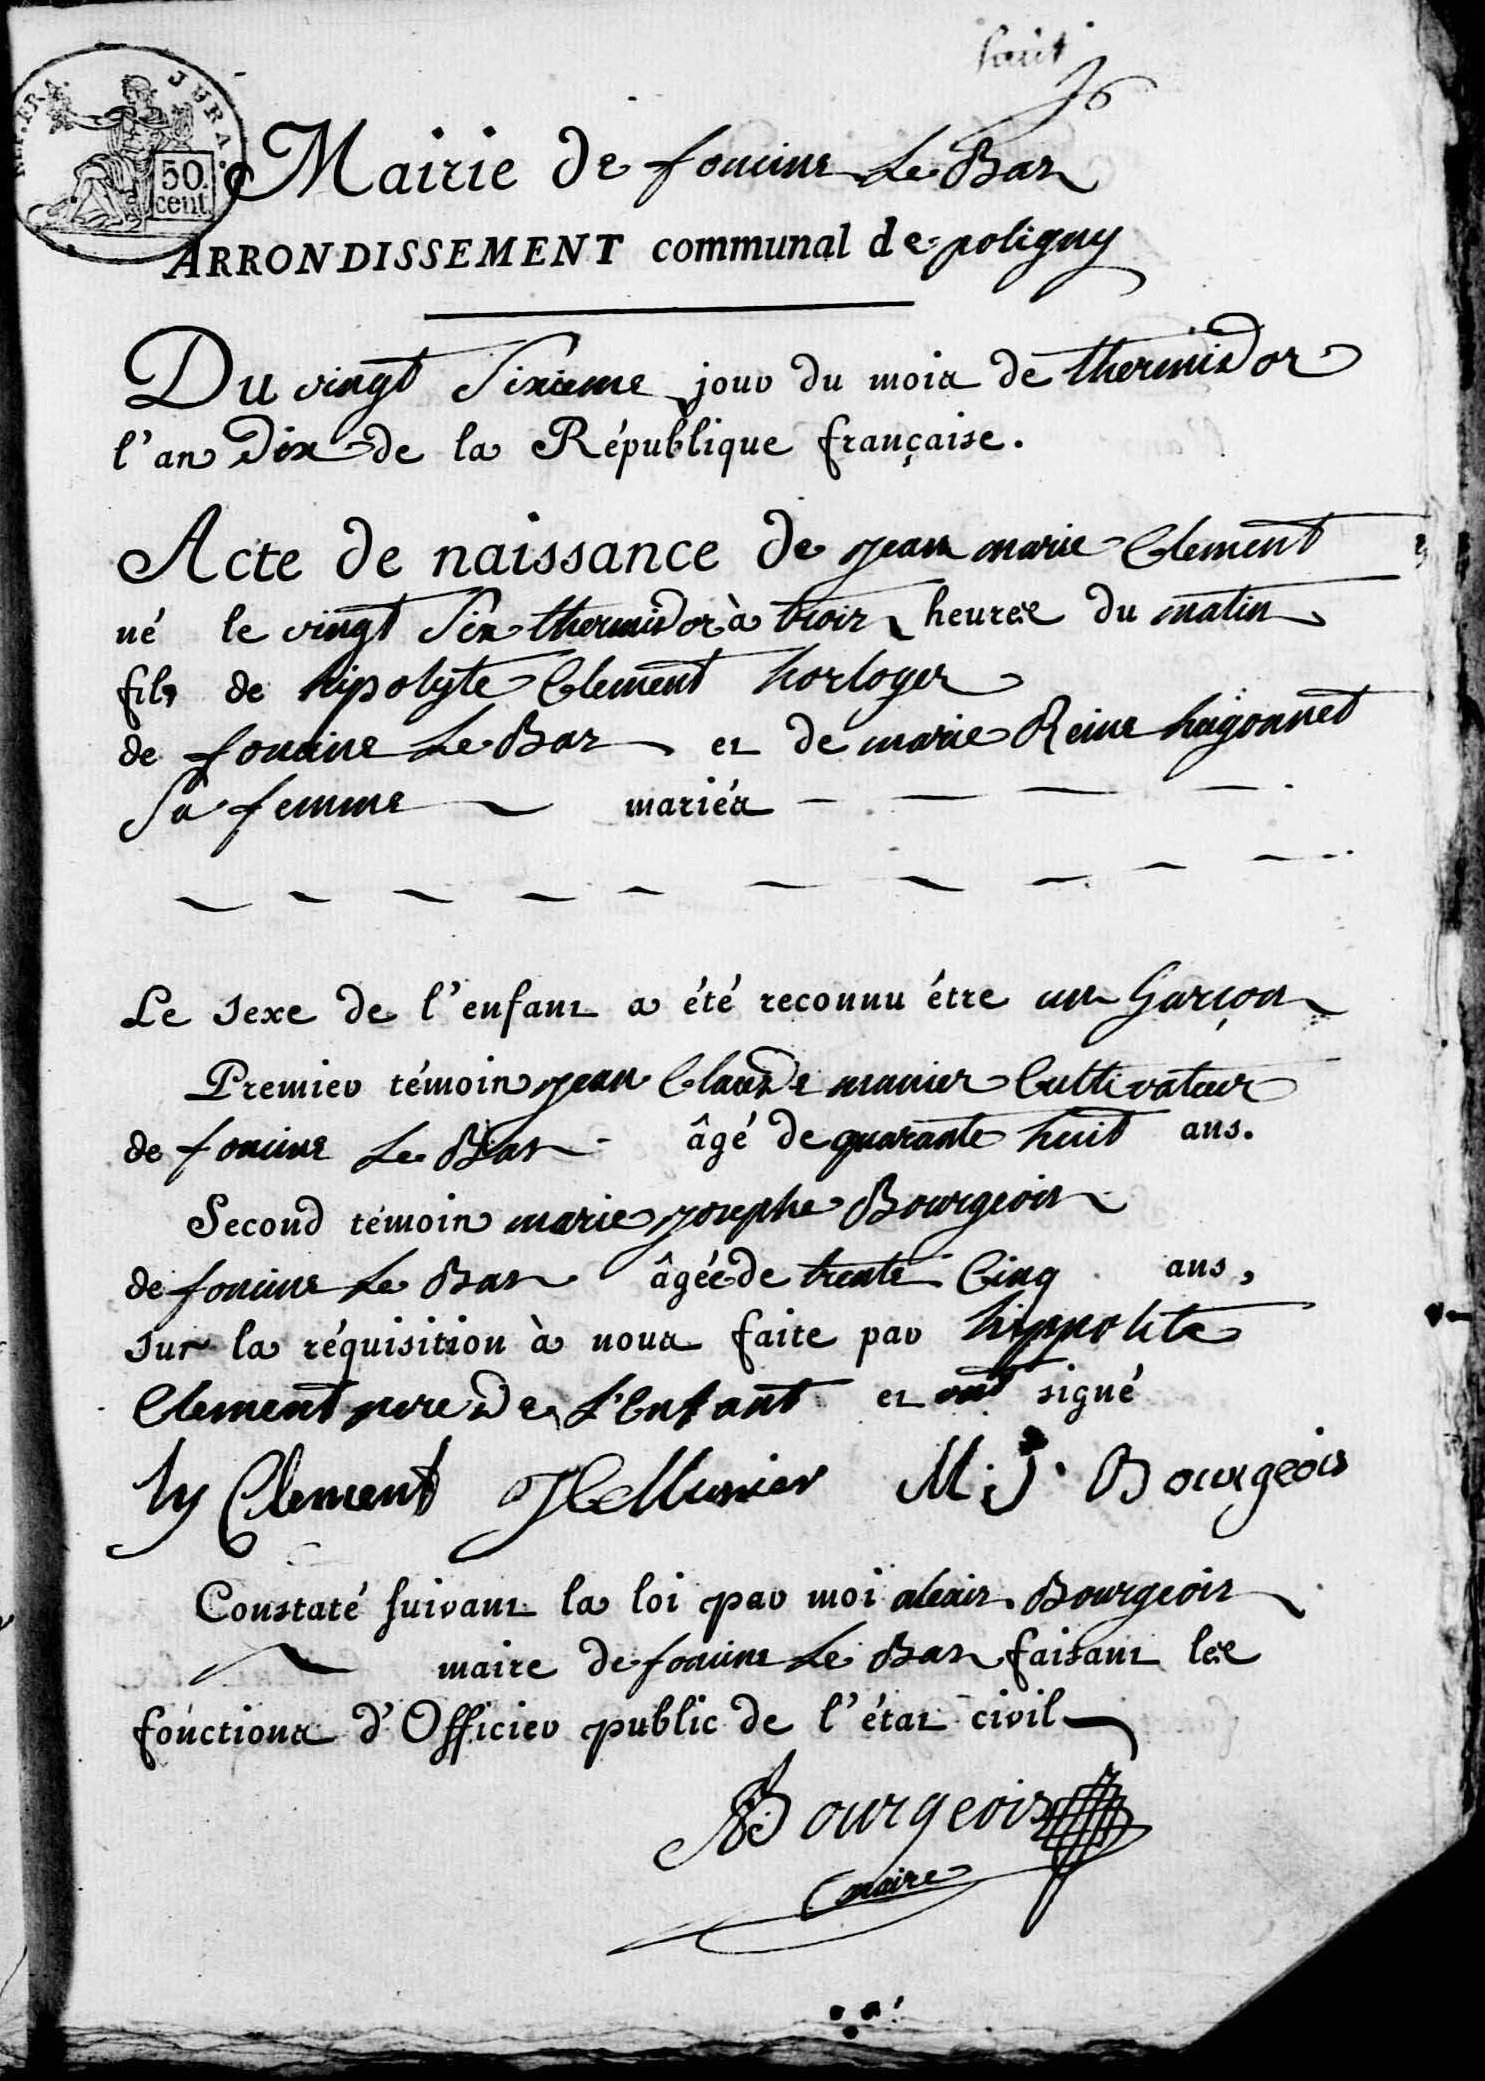 huit
REP. FRA. JURA.
50 cent.
Mairie de foncine Le Bas
ARRONDISSEMENT communal de poligny
Du vingt Sixieme jour du mois de thermidor
l'an Dix de la République française.
Acte de naissance de jean marie Clement
né le vingt Six thermidor à trois heures du matin
fils de hipolyte Clement horloger
de foncine Le Bas et de marie Reine hugonnet
Sa femme mariés
Le sexe de l'enfant a été reconnu étre un Garçon
Premier témoin jean Claude munier Cultivateur
de foncine Le Bas âgé de quarante huit ans.
Second témoin marie josephe Bourgeois
de foncine Le Bas âgée de trente Cinq ans,
sur la réquisition à nous faite par hippolite
Clement pere de L'Enfant et ont signé
hy Clement JC Munier M. J. Bourgeois
Constaté suivant la loi par moi alexis Bourgeois
maire de foncine Le Bas faisant les
fonctions d'Officier public de l'état civil
A Bourgeois
maire